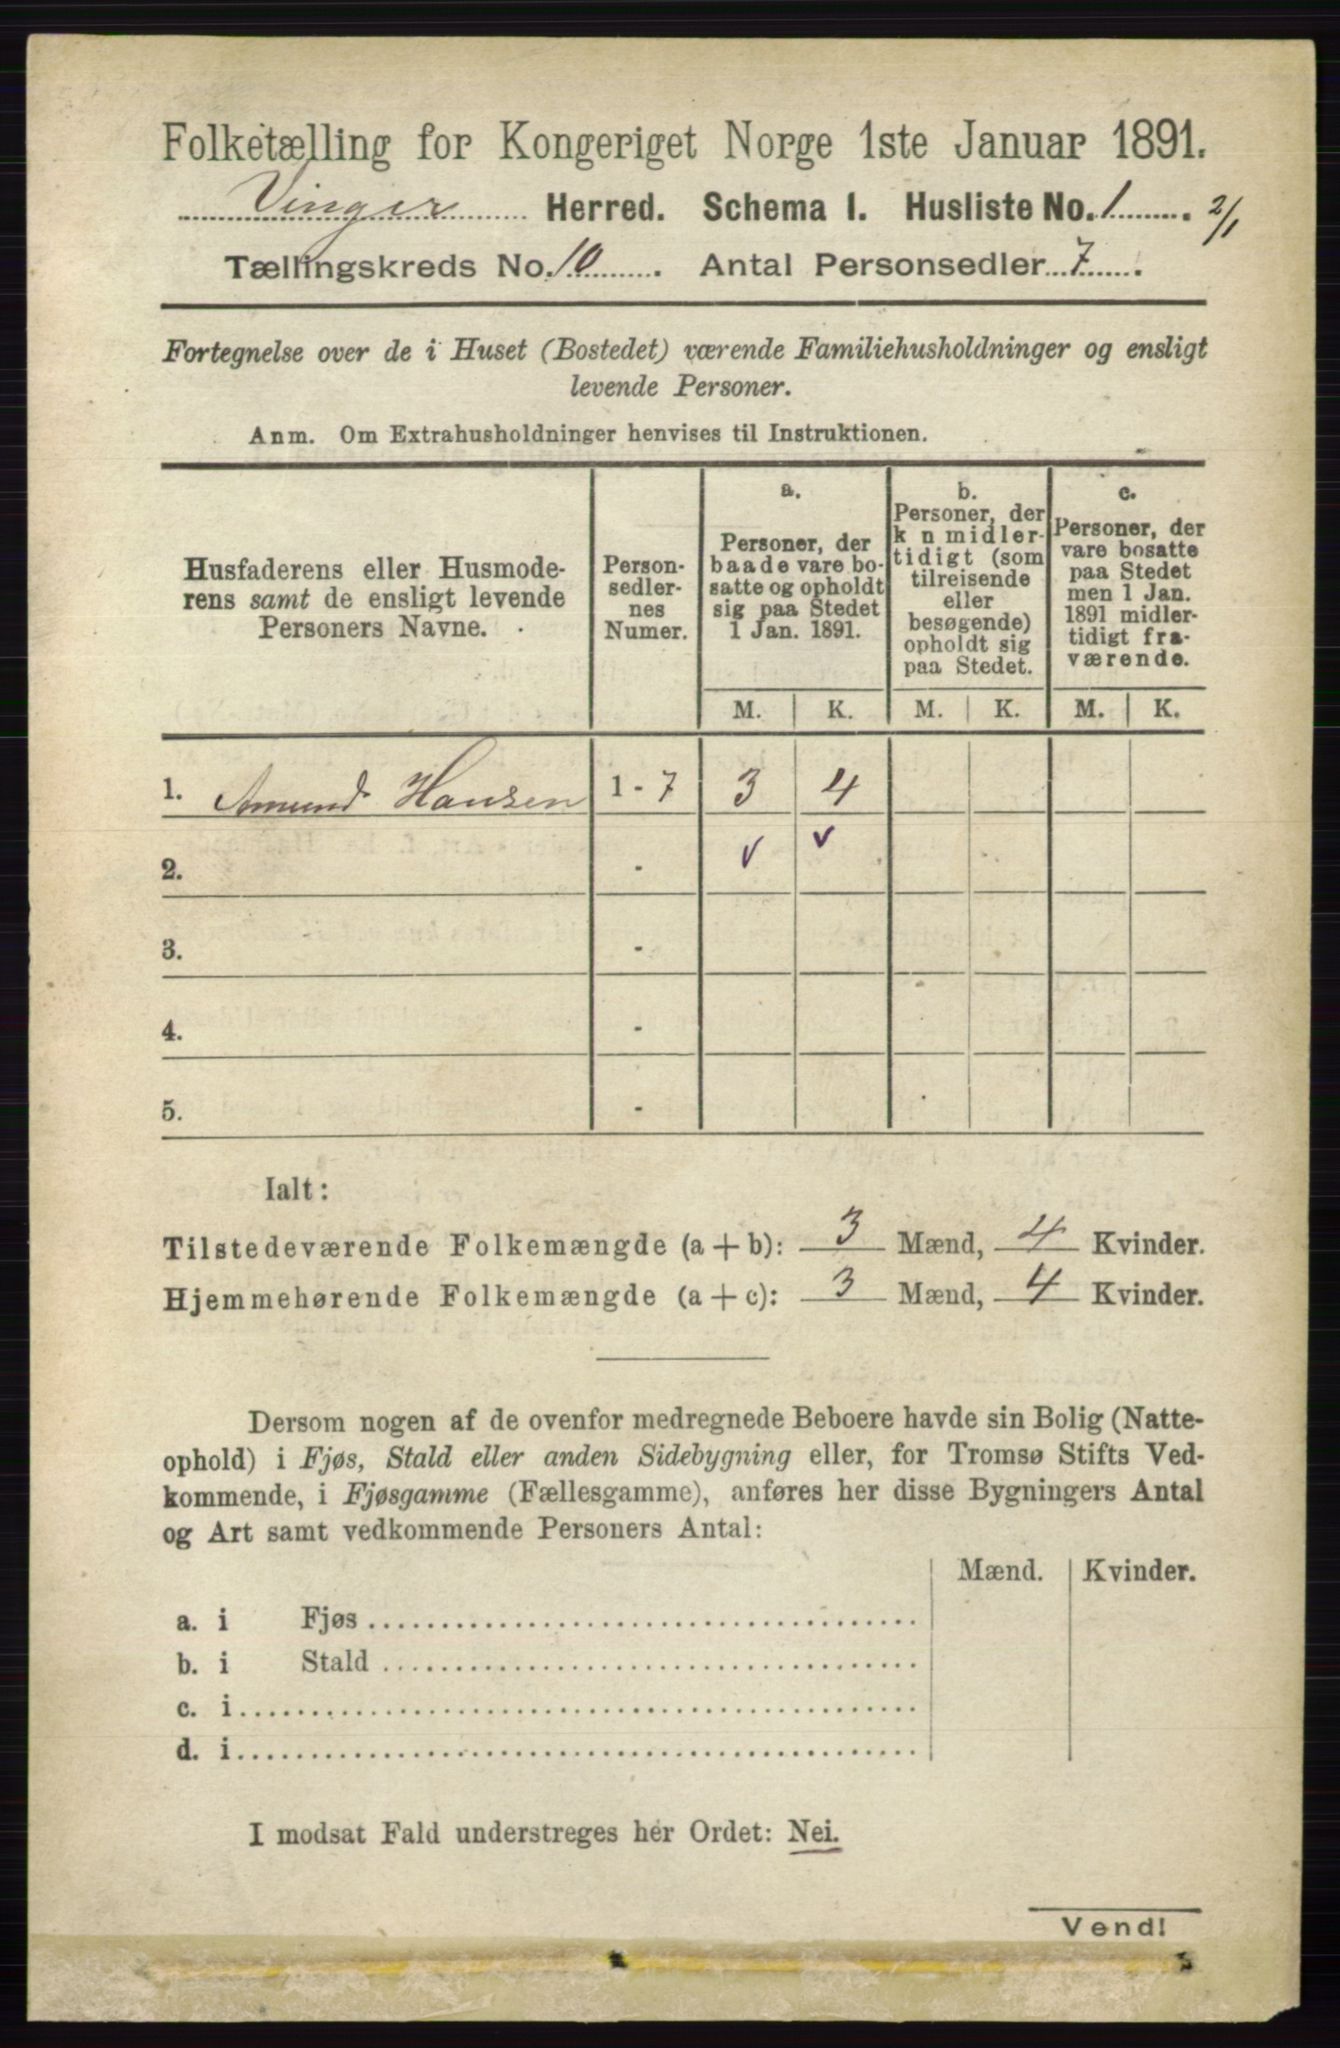 Folketælling for Kongeriget Norge 1ste Januar 1891.
Vinger Herred. Schema 1. Husliste No. 1. 2/1
Tællingskreds No. 10. Antal Personsedler 7.
Fortegnelse over de i Huset (Bostedet) værende Familiehusholdninger og ensligt
levende Personer.
Anm. Om Extrahusholdninger henvises til Instruktionen.
Husfaderens eller Husmode-
rens samt de ensligt levende
Personers Navne.
Person-
sedler-
nes
Numer.
a.
Personer, der
baade vare bo-
satte og opholdt
sig paa Stedet
1 Jan. 1891.
b.
Personer, der
k n midler-
tidigt (som
tilreisende
eller
besøgende)
opholdt sig
paa Stedet.
c.
Personer, der
vare bosatte
paa Stedet
men 1 Jan.
1891 midler-
tidigt fra-
værende.
M. K. M. K. M. K.
1. Amund Hansen 1 - 7 3 4
2. - v v
3. -
4. -
5. -
Ialt:
Tilstedeværende Folkemængde (a + b): 3 Mænd, 4 Kvinder.
Hjemmehørende Folkemængde (a + c): 3 Mænd, 4 Kvinder.
Dersom nogen af de ovenfor medregnede Beboere havde sin Bolig (Natte-
ophold) i Fjøs, Stald eller anden Sidebygning eller, for Tromsø Stifts Ved-
kommende, i Fjøsgamme (Fællesgamme), anføres her disse Bygningers Antal
og Art samt vedkommende Personers Antal:
Mænd. Kvinder.
a. i Fjøs
b. i Stald
c. i
d. i
I modsat Fald understreges her Ordet: Nei.
Vend!